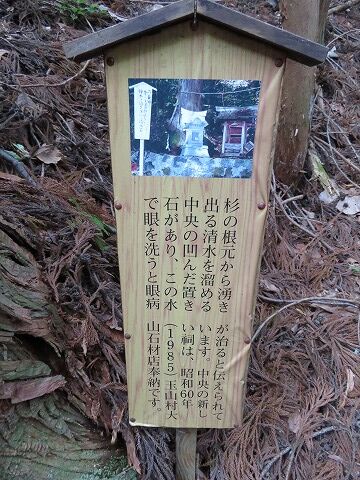 杉の根元から湧き
出る清水を溜める
中央の凹んだ置き
石があり、この水
で眼を洗うと眼病
が治ると伝えられて
います。中央の新し
い祠は、昭和60年
(1985)玉山村大
山石材店奉納です。